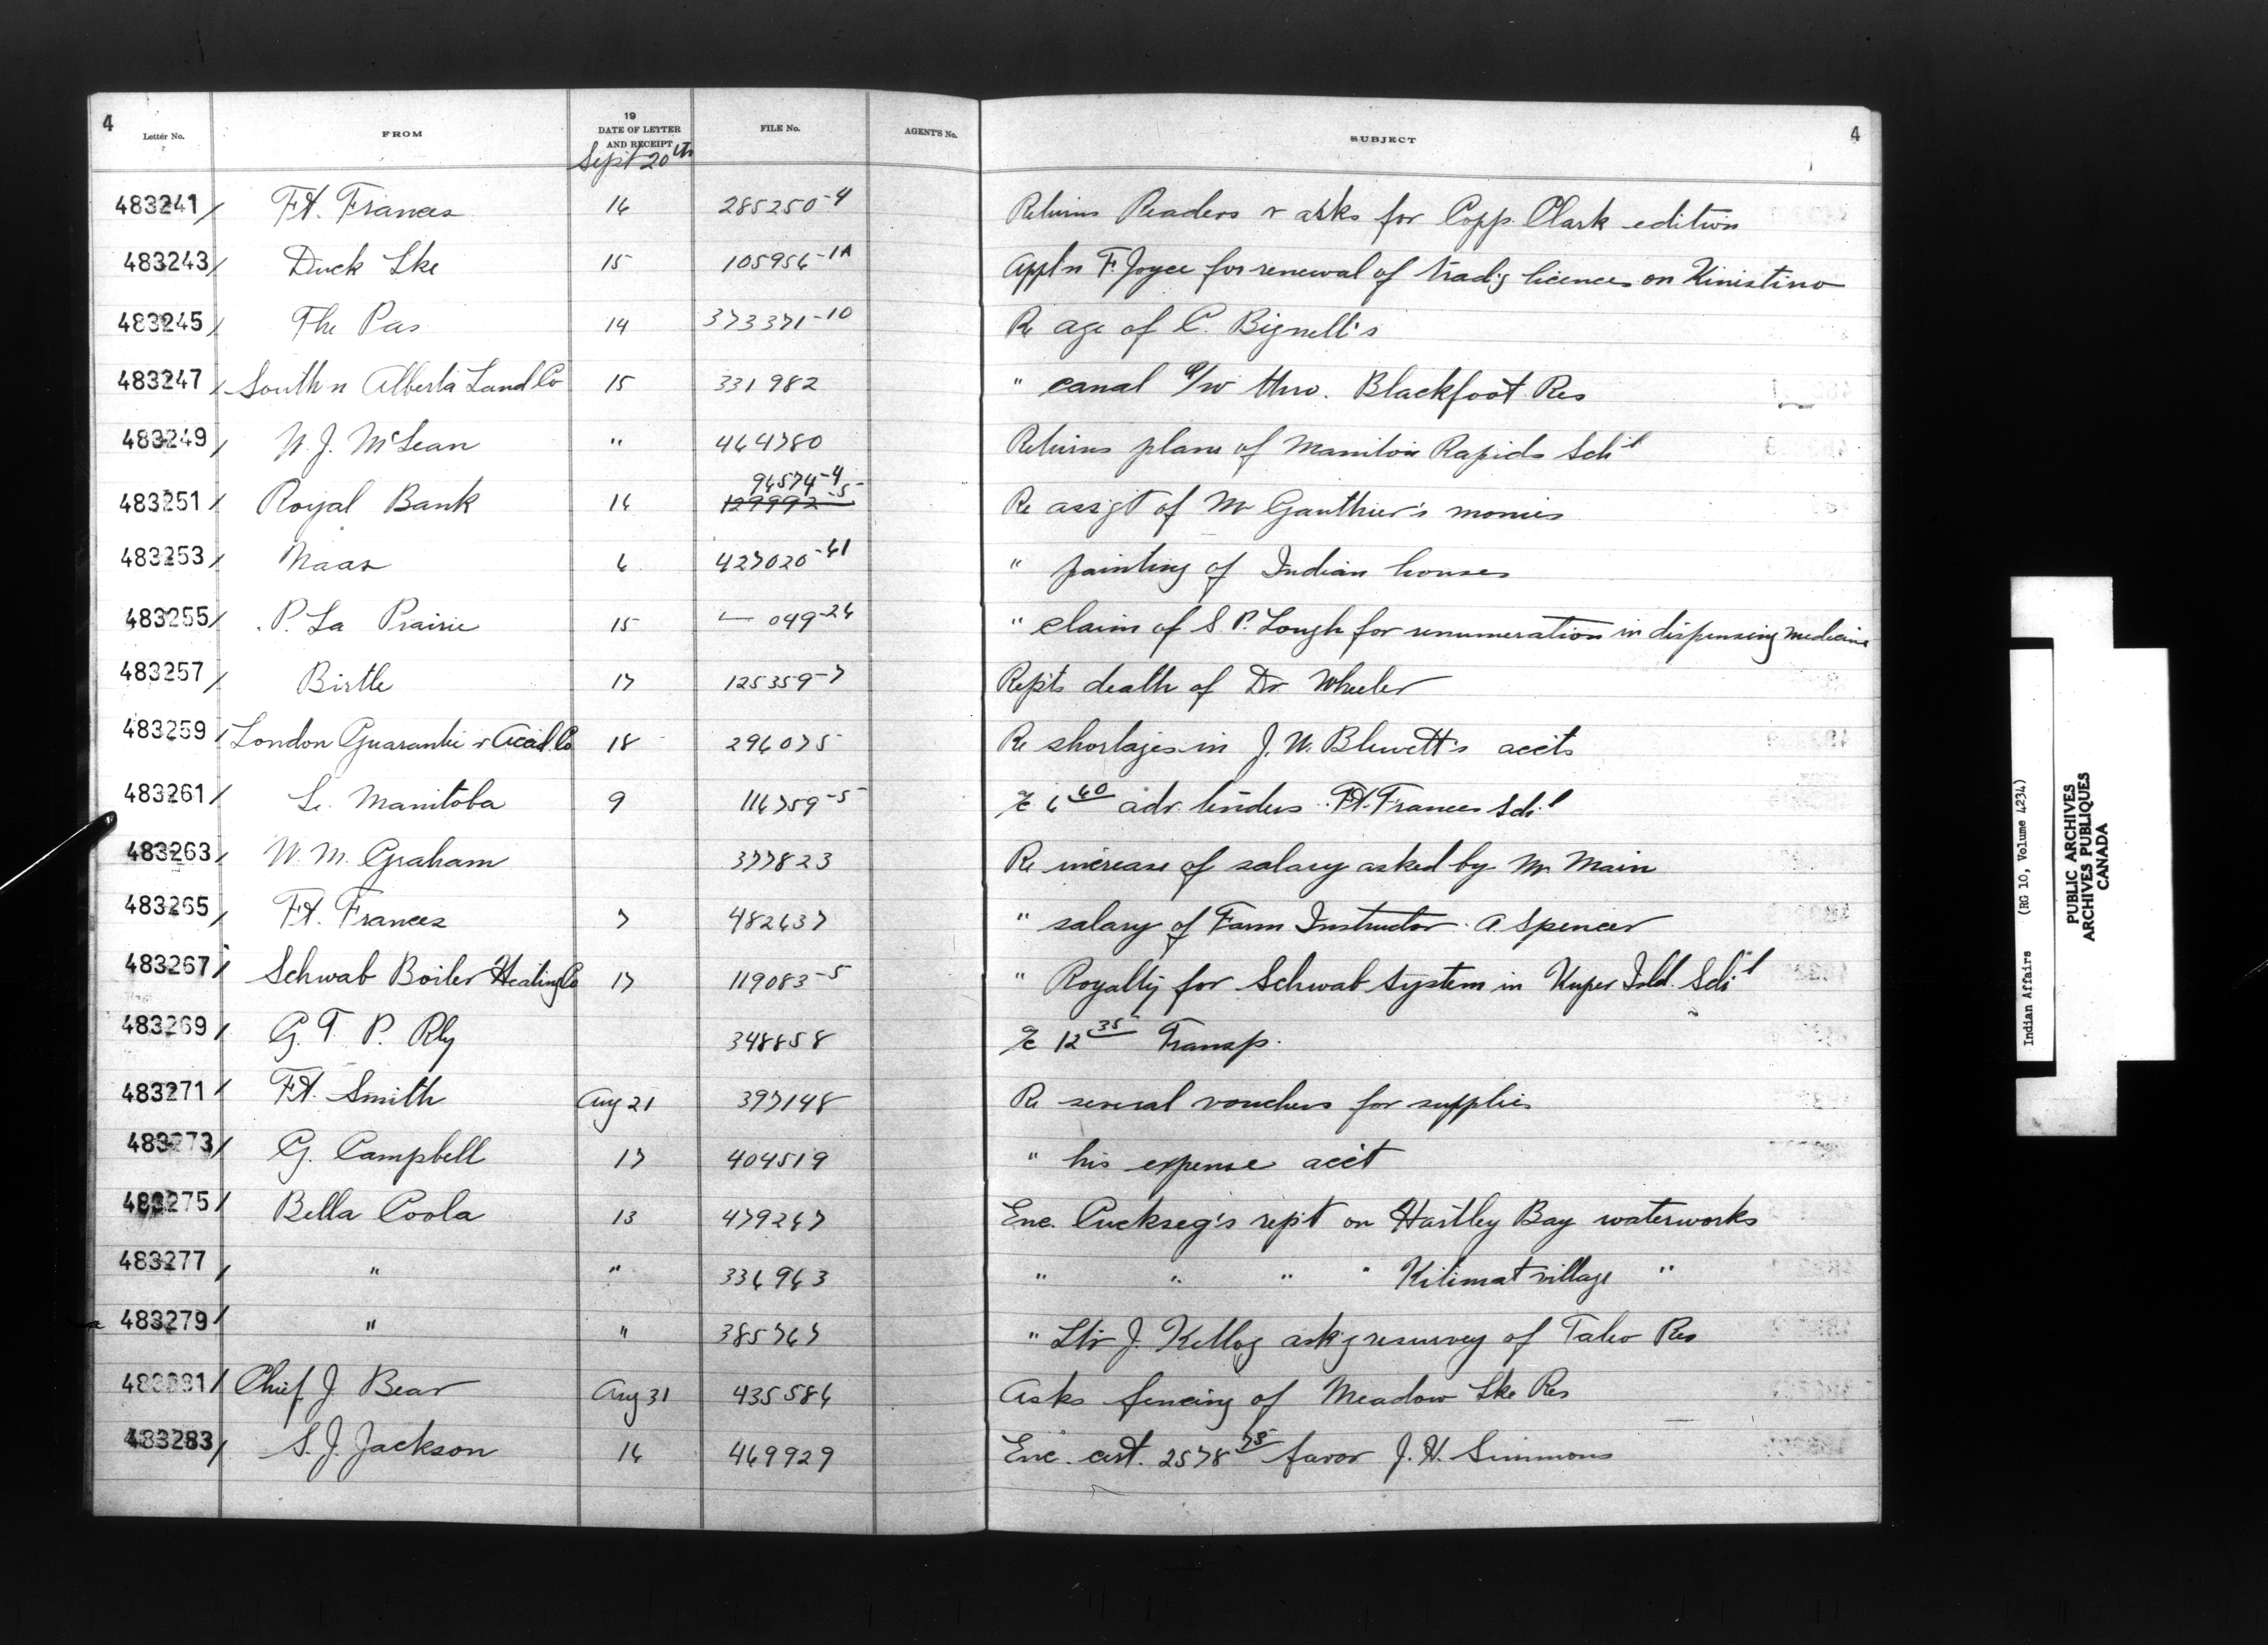 4
Letter No. FROM 19 DATE OF LETTER AND RECEIPT FILE No. AGENT'S No. SUBJECT 4
Sept 20th
483241 Ft. Frances 16 285250-4 Returns Readers & asks for Copp. Clark edition
483243 Duck Lke 15 105956-1A Appl'n F. Joyce for renewal of trad'g licences on Kinistino
483245 The Pas 14 373371-10 Re age of C. Bignell's
483247 South'n Alberta Land Co 15 331982 " canal R/W thro. Blackfoot Res
483249 W. J. McLean " 464780 Returns plans of Manitou Rapids Sch'l
483251 Royal Bank 16 96574-4 129992-5 Re assg't of Mr Gauthier's monies
483253 Naas 6 427020-61 " painting of Indian houses
483255 P. La Prairie 15 — 049-26 " claim of S. P. Lough for renumeration in dispensing medicine
483257 Birtle 17 125359-7 Rep'ts death of Dr Wheeler
483259 London Guarantee & Accid. Co 18 296075 Re shortages in J. W. Blewett's acc'ts
483261 Le Manitoba 9 116759-5 a/c 6 60 adv. tenders Ft. Frances Sch'l
483263 W. M. Graham 377823 Re increase of salary asked by Mr Main
483265 Ft. Frances 7 482637 " salary of Farm Instructor A Spencer
483267 Schwab Boiler Heating Co 17 119083-5 " Royalty for Schwab System in Kuper Isld. Sch'l
483269 G. T. P. Rly 348858 a/c 12 35 Transp.
483271 Ft. Smith Aug 21 397148 Re several vouchers for supplies
483273 G. Campbell 17 404519 " his expense acc't
483275 Bella Coola 13 479267 Enc. Puckseg's rep't on Hartley Bay waterworks
483277 " " 336963 " " " " Kitimat village "
483279 " " 385767 " Ltr J. Kellog ask'g resurvey of Taleo Res
483281 Chief J. Bear Aug 31 435586 Asks fencing of Meadow Lke Res
483283 S. J. Jackson 16 469929 Enc. cert. 2578 75 favor J. H. Simmons
Indian Affairs (RG 10, Volume 4234)
PUBLIC ARCHIVES
ARCHIVES PUBLIQUES
CANADA